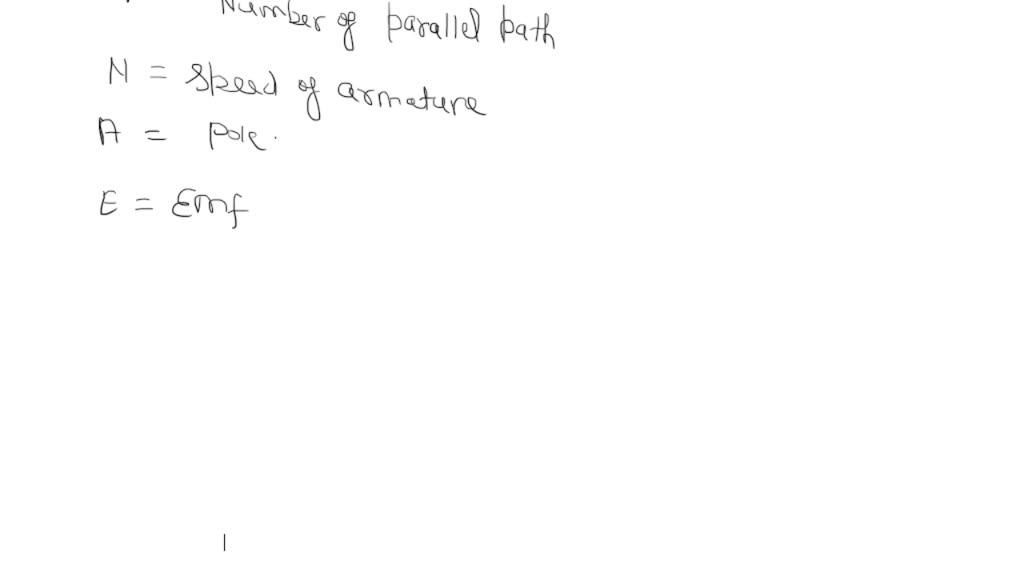 Number of parallel path
N = Speed of armature
A = Pole.
E = Emf